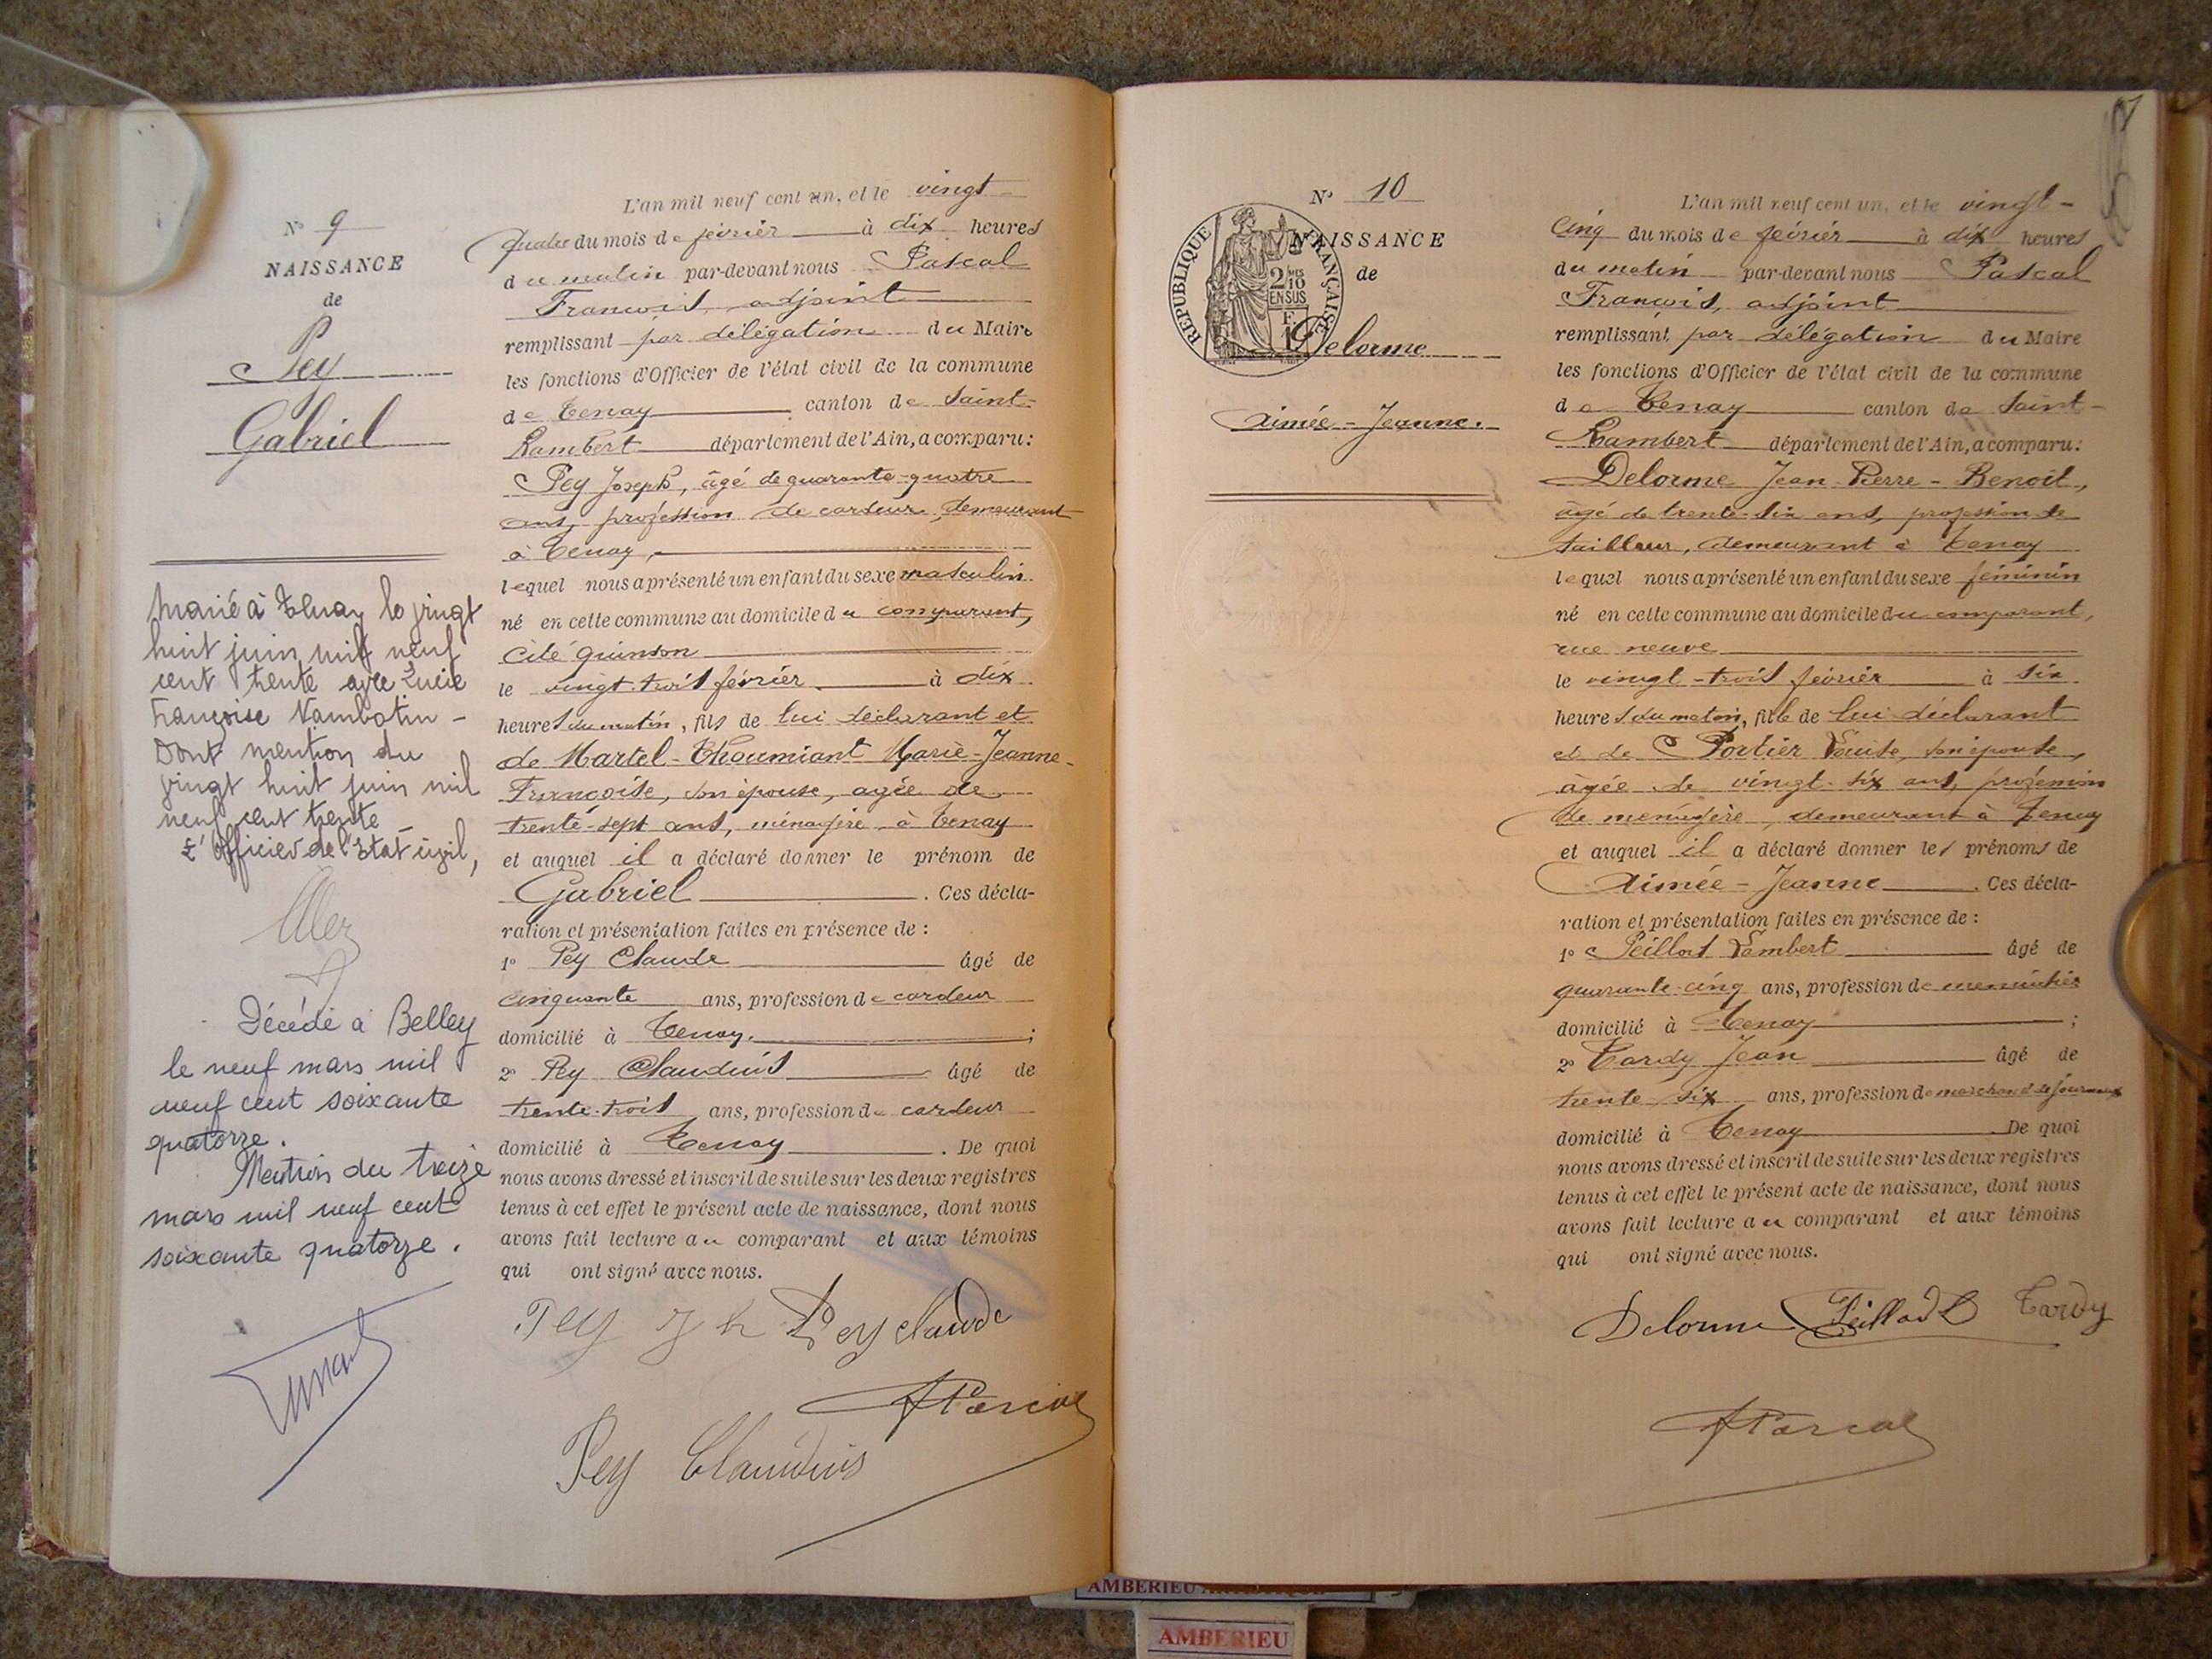 N° 9
NAISSANCE
de
Pey
Gabriel
Marié à Tenay le vingt
huit juin mil neuf
cent trente avec Lucie
Françoise Vambotin -
Dont mention du
vingt huit juin mil
neuf cent trente
L'Officier de l'Etat civil,
Décédé à Belley
le neuf mars mil
neuf cent soixante
quatorze.
Mention du treize
mars mil neuf cent
soixante quatorze.
L'an mil neuf cent un, et le vingt-
quatre du mois de février à dix heures
du matin par-devant nous Pascal
François, adjoint
remplissant par délégation du Maire
les fonctions d'Officier de l'état civil de la commune
de Tenay canton de Saint-
Rambert département de l'Ain, a comparu :
Pey Joseph, âgé de quarante-quatre
ans, profession de cardeur, demeurant
à Tenay,
lequel nous a présenté un enfant du sexe masculin
né en cette commune au domicile du comparant,
cité quinson
le vingt-trois février à dix
heures du matin, fils de lui déclarant et
de Martel-Thoumiant Marie-Jeanne-
Françoise, son épouse, agée de
trente-sept ans, ménagère, à Tenay
et auquel il a déclaré donner le prénom de
Gabriel . Ces décla-
ration et présentation faites en présence de :
1° Pey Claude âgé de
cinquante ans, profession de cardeur
domicilié à Tenay. ;
2° Pey Claudius âgé de
trente-trois ans, profession de cardeur
domicilié à Tenay . De quoi
nous avons dressé et inscrit de suite sur les deux registres
tenus à cet effet le présent acte de naissance, dont nous
avons fait lecture au comparant et aux témoins
qui ont signé avec nous.
Pey Jh Pey claude
APascal
Pey Claudius
N° 10
NAISSANCE
de
REPUBLIQUE FRANÇAISE
2 MES
10
EN SUS
Delorme
Aimée-Jeanne.
L'an mil neuf cent un, et le vingt-
cinq du mois de février à dix heures
du matin par-devant nous Pascal
François, adjoint
remplissant par délégation du Maire
les fonctions d'Officier de l'état civil de la commune
de Tenay canton de Saint-
Rambert département de l'Ain, a comparu :
Delorme Jean-Pierre-Benoît,
âgé de trente-six ans, profession de
tailleur, demeurant à Tenay
lequel nous a présenté un enfant du sexe féminin
né en cette commune au domicile du comparant,
rue neuve
le vingt-trois février à six
heures du matin, fille de lui déclarant
et de Portier Louise, son épouse,
âgée de vingt-six ans, profession
de ménagère, demeurant à Tenay
et auquel il a déclaré donner les prénoms de
Aimée-Jeanne . Ces décla-
ration et présentation faites en présence de :
1° Peillod Lambert âgé de
quarante-cinq ans, profession de menuisier
domicilié à Tenay ;
2° Tardy Jean âgé de
trente-six ans, profession de marchand de journaux
domicilié à Tenay De quoi
nous avons dressé et inscrit de suite sur les deux registres
tenus à cet effet le présent acte de naissance, dont nous
avons fait lecture au comparant et aux témoins
qui ont signé avec nous.
Delorme Peillod L Tardy
APascal
AMBERIEU
AMBERIEU